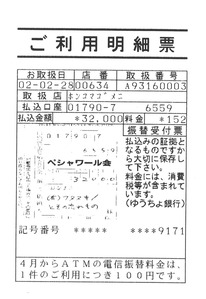 ご利用明細票
お取扱日 店番 取扱番号
02-02-28 00634 A93160003
取扱店 ホンコマゴメニ
払込口座 01790-7 6559
払込金額 *32,000 料金 *152
振替受付票
払込みの証拠
となるものですか
ら大切に保存し
て下さい。
料金には、消費
税等が含まれて
います。
(ゆうちょ銀行)
01790 7
ペシャワール会
32000
記号番号 ***** ****9171
4月からATMの電信振替料金は、
1件のご利用につき100円です。